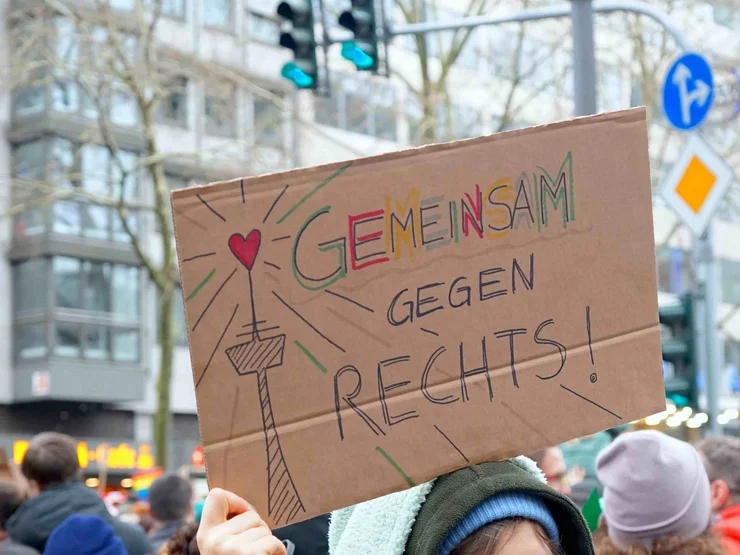 GEMEINSAM
GEGEN
RECHTS!